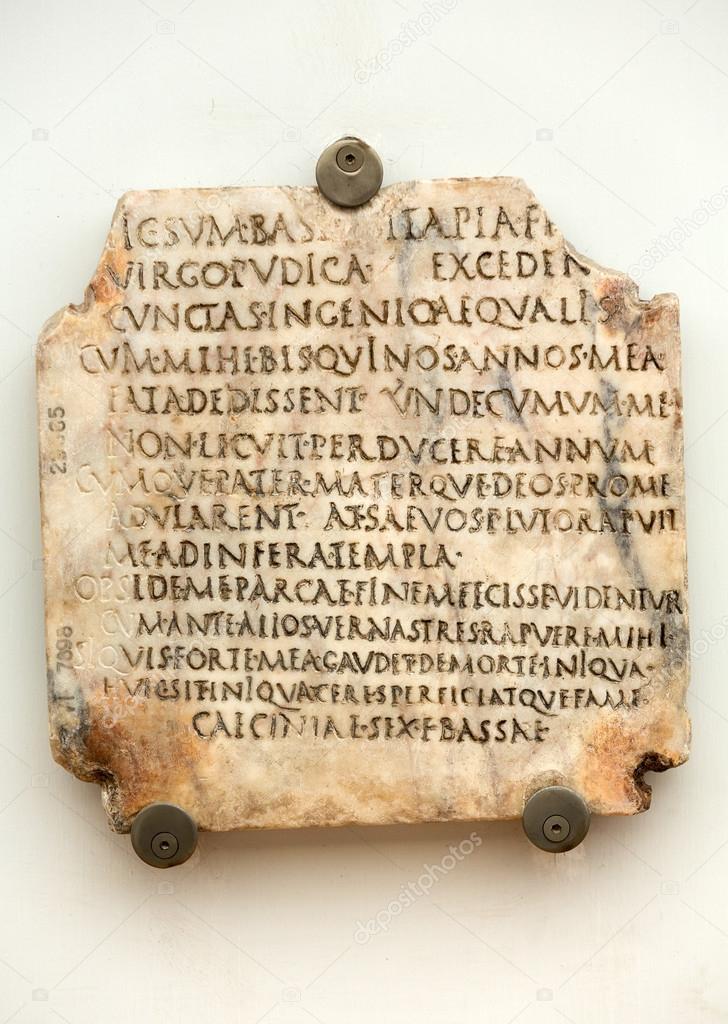 IC SVM·BAS ITA PIA F
VIRGO PVDICA· EXCEDEN
CVNCTAS·INGENIO AEQVALIS
CVM·MIHI·BIS QVINOS ANNOS·MEA
FATA DEDISSENT VNDECVMVM·ME
NON·LICVIT·PERDVCERE·ANNVM
CVMQVE PATER·MATERQVE·DEOS PRO ME
ADVLARENT· AT SAEVOS PLVTO RAPVIT
ME AD INFERA TEMPLA·
OPSIDEM E PARCAE FINEM FECISSE VIDENTVR
CVM ANTE ALIOS VERNAS TRES RAPVERE·MIHI·
SIQVIS FORTE·MEA GAVDET DE MORTE·INIQVA·
HVIC SIT INIQVA CERES PERFICIATQVE FAME·
CALCINIAE·SEX·F BASSAE
29865
VI 7098
depositphotos
depositphotos
depositphotos
depositphotos